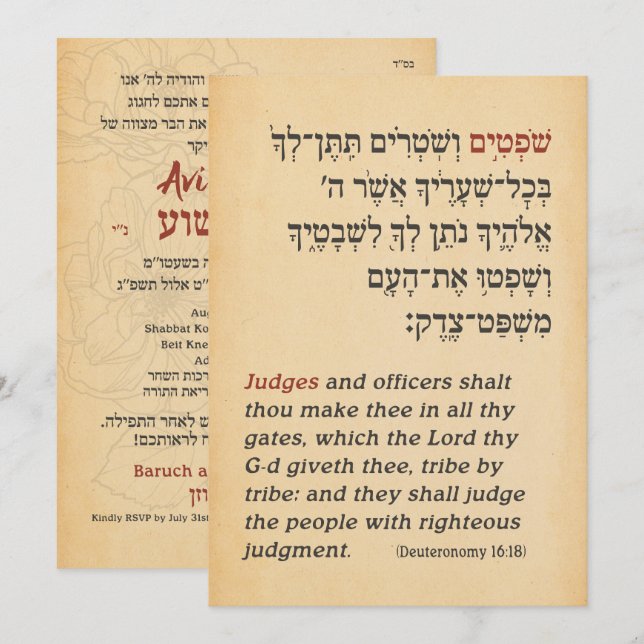 בס"ד
והודיה לה' אנו
אתכם לחגוג
את הבר מצווה של
Avi
שוע נ"י
בשעטו"מ
אלול תשפ"ג
Shabbat
Beit
ברכות השחר
קריאת התורה
לאחר התפילה.
לראותכם!
Baruch
Kindly RSVP by July 31st
שֹׁפְטִ֣ים וְשֹֽׁטְרִ֗ים תִּֽתֶּן־לְךָ֙
בְּכׇל־שְׁעָרֶ֔יךָ אֲשֶׁ֨ר ה׳
אֱלֹהֶ֛יךָ נֹתֵ֥ן לְךָ֖ לִשְׁבָטֶ֑יךָ
וְשָׁפְט֥וּ אֶת־הָעָ֖ם
מִשְׁפַּט־צֶֽדֶק׃
Judges and officers shalt
thou make thee in all thy
gates, which the Lord thy
G-d giveth thee, tribe by
tribe: and they shall judge
the people with righteous
judgment. (Deuteronomy 16:18)